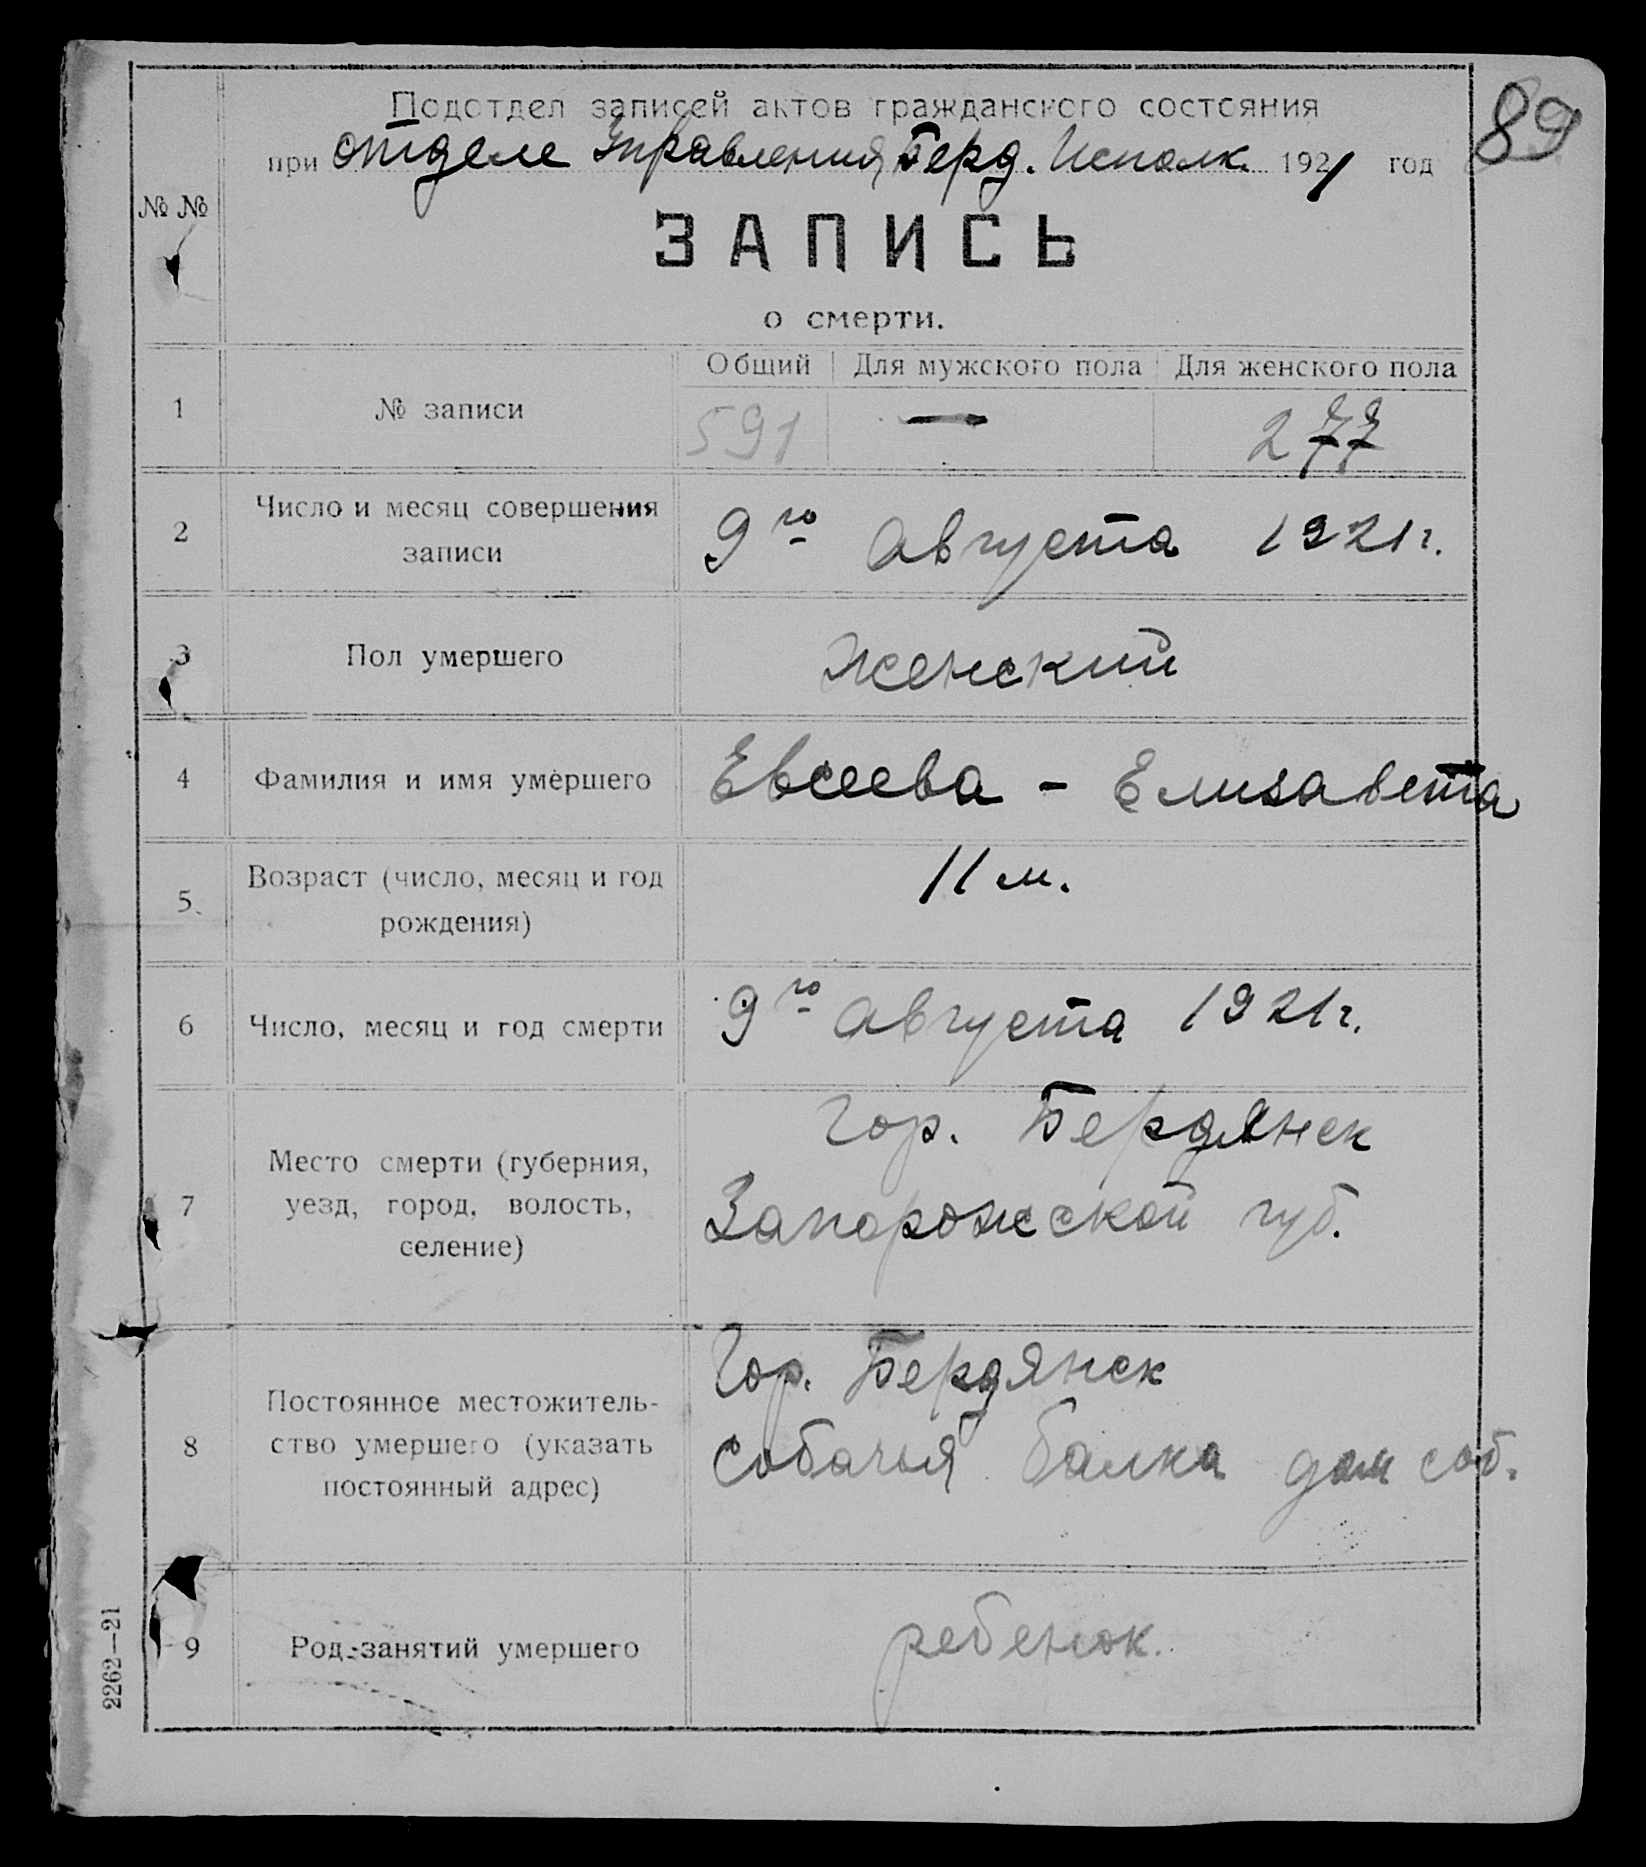 89
Подотдел записей актов гражданского состояния
при отделе Управления Берд. Исполк. 1921 год
№ №
ЗАПИСЬ
о смерти.
Общий Для мужского пола Для женского пола
1 № записи 591 — 277
Число и месяц совершения
2 9го Августа 1921 г.
записи
3 Пол умершего Женский
4 Фамилия и имя умершего Евсеева - Елизавета
11 м.
Возраст (число, месяц и год
5
рождения)
6 Число, месяц и год смерти 9го Августа 1921 г.
Гор. Бердянск
Место смерти (губерния,
7 уезд, город, волость, Запорожской губ.
селение)
Гор. Бердянск
Постоянное местожитель-
8 ство умершего (указать Собачья балка дом соб.
постоянный адрес)
9 Род занятий умершего ребенок.
2262—21